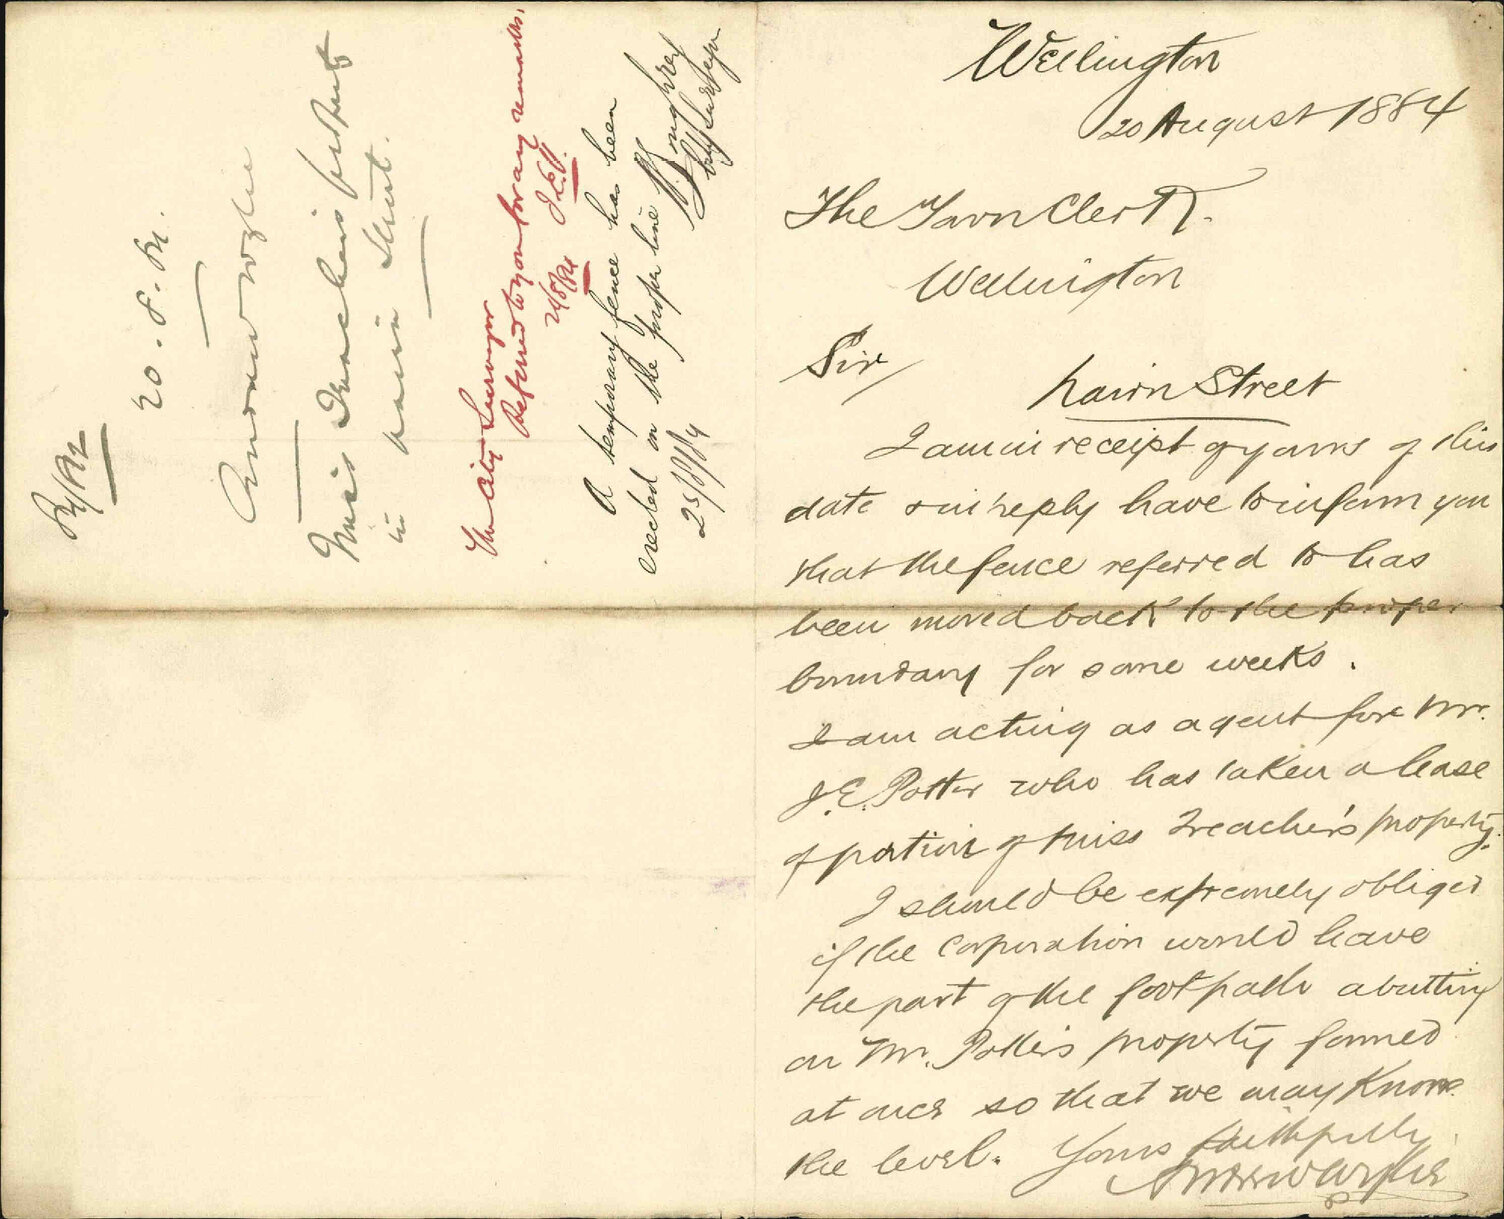 Wellington
20 August 1884
The Town Clerk.
Wellington
Sir/
Nairn Street
I am in receipt of yours of this
date & in reply have to inform you
that the fence referred to has
been moved back to the proper
boundary for some weeks.
I am acting as agent for Mr.
J.E. Potter who has taken a lease
of portion of Miss Treacher's property.
I should be extremely obliged
if the Corporation would have
the part of the footpath abutting
on Mr. Potter's property formed
at once so that we may know
the level. Yours faithfully
Andrew Wylie
20.8.84
Andrew Wylie
Miss Treacher's
in Nairn Street.
The City Surveyor
Referred to you for any remarks.
J.E.P.
A temporary fence has been
erected on the proper line
25/8/84
City Surveyor